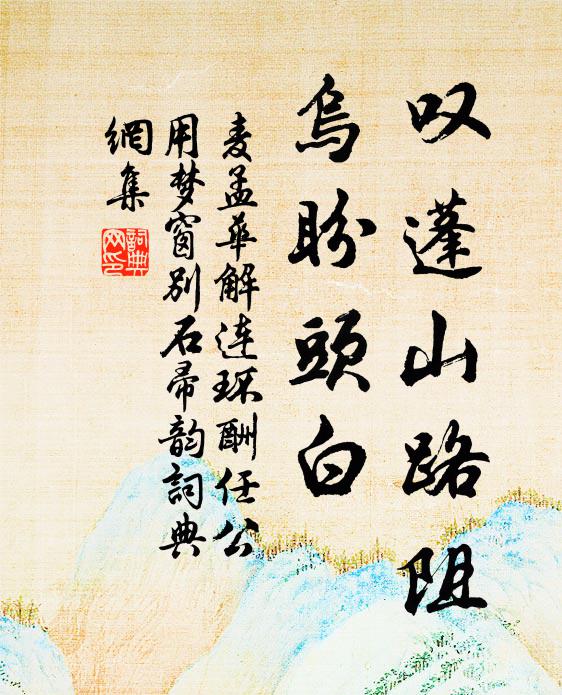 叹蓬山路阻
乌盼头白
麦孟华解连环酬任公
用梦窗别石帚韵词典
網集
詞典
网印